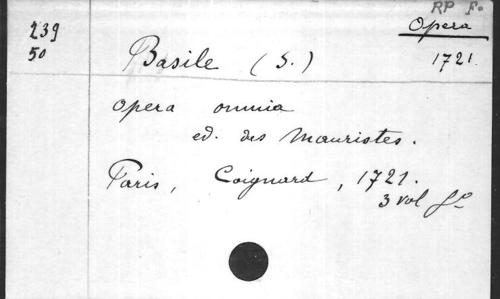 RP F.
239
50
Opera
1721
Basile (S.)
opera omnia
ed. des Mauristes.
Paris, Coignard, 1721.
3 vol fo